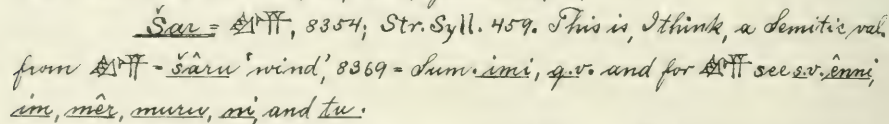 Šar = 𒅎, 8354; Str. Syll. 459. This is, I think, a Semitic val.
from 𒅎 = šâru 'wind', 8369 = Sum. imi, q.v. and for 𒅎 see s.v. ênni,
im, mêr, muru, ni, and tu.